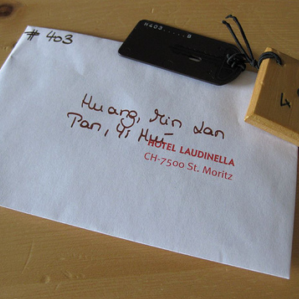 # 403
Huang, Min Lan
Pan, Yi Hui
HOTEL LAUDINELLA
CH-7500 St. Moritz